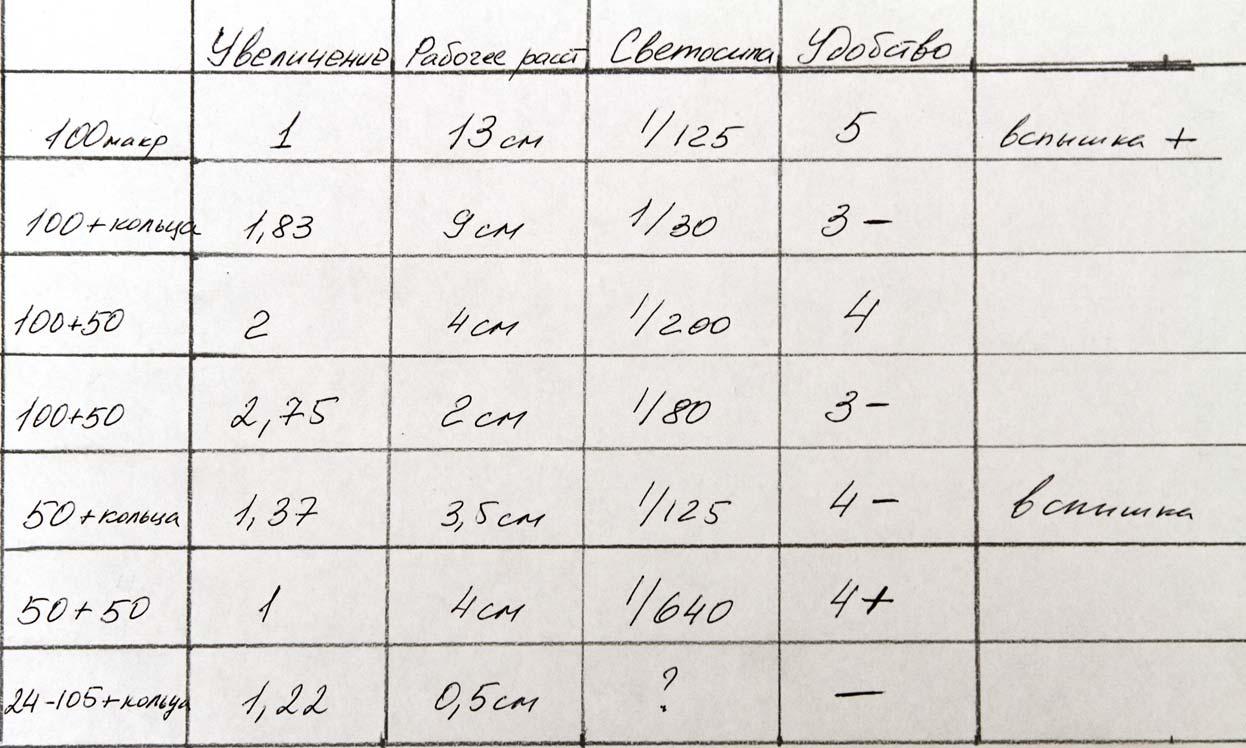 Увеличение Рабочее расст Светосила Удобство
100макр 1 13см 1/125 5 вспышка +
100+кольца 1,83 9см 1/30 3-
100+50 2 4см 1/200 4
100+50 2,75 2см 1/80 3-
50+кольца 1,37 3,5см 1/125 4- вспышка
50+50 1 4см 1/640 4+
24-105+кольца 1,22 0,5см ? —